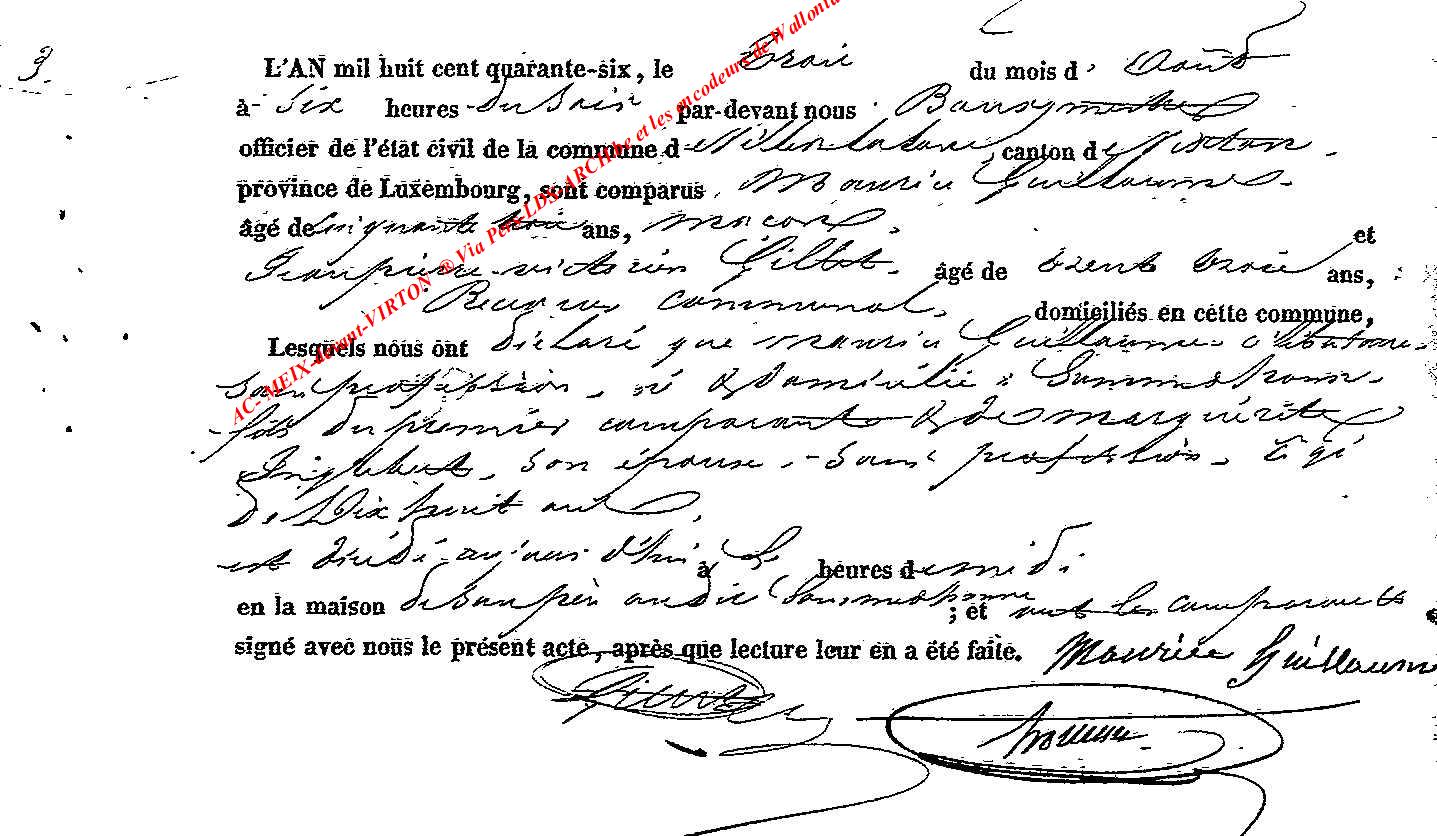 3.
L'AN mil huit cent quarante-six, le Trois du mois d' Août
à Six heures du Soir par-devant nous Bourgmestre
officier de l'état civil de la commune de Villers la loue, canton de Virton
province de Luxembourg, sont comparus Maurice Guillaume
âgé de cinquante trois ans, maçon, et
Jean pierre victorien Gillet, âgé de trente trois ans,
Receveur communal, domiciliés en cette commune,
Lesquels nous ont déclaré que Maurice Guillaume célibataire
Sans profession, né & domicilié à Sommethonne
fils du premier comparant & de marguérite
son épouse, Sans profession, âgé
de Dix huit ans,
est décédé aujourd'hui à heures de midi
en la maison de Son père audit Sommethonne ; et ont les comparants
signé avec nous le présent acte, après que lecture leur en a été faite. Maurice Guillaume
Gillet
AC- MEIX-devant-VIRTON ® Via Pers-LDS-ARCH.be et les encodeurs de Wallonie